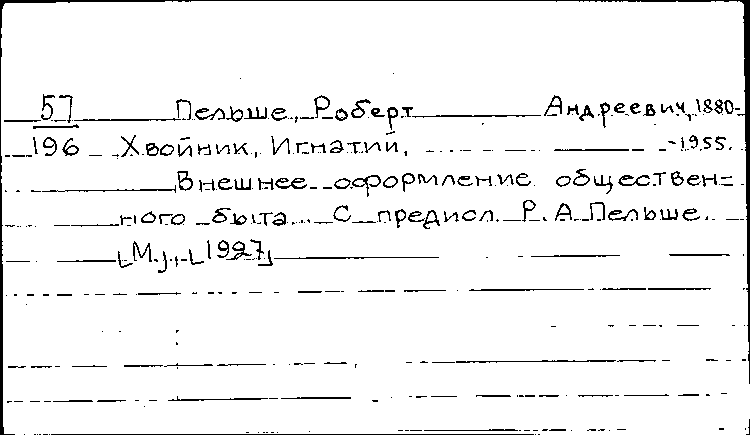 57 Пельше, Роберт Андреевич, 1880-
196 Хвойник, Игнатий, -1955.
Внешнее оформление обществен=
ного быта. С предисл. Р. А. Пельше.
[М.], [1927]